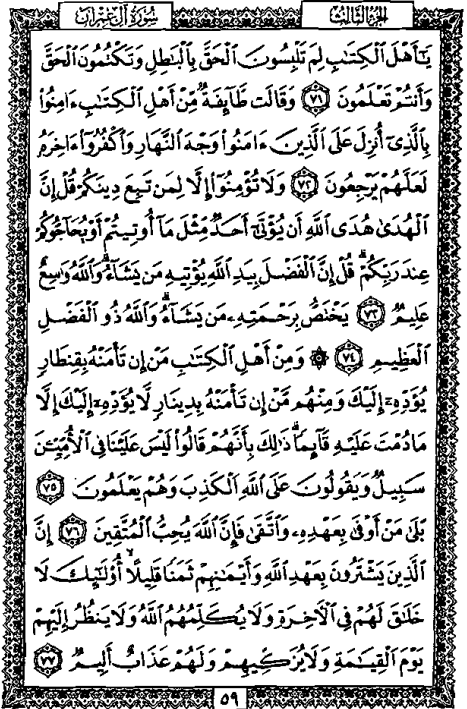 الجزء الثالث
سورة آل عمران
يَـٰٓأَهْلَ ٱلْكِتَـٰبِ لِمَ تَلْبِسُونَ ٱلْحَقَّ بِٱلْبَـٰطِلِ وَتَكْتُمُونَ ٱلْحَقَّ
وَأَنتُمْ تَعْلَمُونَ ٧١ وَقَالَت طَّآئِفَةٌ مِّنْ أَهْلِ ٱلْكِتَـٰبِ ءَامِنُوا۟
بِٱلَّذِىٓ أُنزِلَ عَلَى ٱلَّذِينَ ءَامَنُوا۟ وَجْهَ ٱلنَّهَارِ وَٱكْفُرُوٓا۟ ءَاخِرَهُۥ
لَعَلَّهُمْ يَرْجِعُونَ ٧٢ وَلَا تُؤْمِنُوٓا۟ إِلَّا لِمَن تَبِعَ دِينَكُمْ قُلْ إِنَّ
ٱلْهُدَىٰ هُدَى ٱللَّهِ أَن يُؤْتَىٰٓ أَحَدٌ مِّثْلَ مَآ أُوتِيتُمْ أَوْ يُحَآجُّوكُمْ
عِندَ رَبِّكُمْ ۗ قُلْ إِنَّ ٱلْفَضْلَ بِيَدِ ٱللَّهِ يُؤْتِيهِ مَن يَشَآءُ ۗ وَٱللَّهُ وَٰسِعٌ
عَلِيمٌ ٧٣ يَخْتَصُّ بِرَحْمَتِهِۦ مَن يَشَآءُ ۗ وَٱللَّهُ ذُو ٱلْفَضْلِ
ٱلْعَظِيمِ ٧٤ ۞ وَمِنْ أَهْلِ ٱلْكِتَـٰبِ مَنْ إِن تَأْمَنْهُ بِقِنطَارٍ
يُؤَدِّهِۦٓ إِلَيْكَ وَمِنْهُم مَّنْ إِن تَأْمَنْهُ بِدِينَارٍ لَّا يُؤَدِّهِۦٓ إِلَيْكَ إِلَّا
مَا دُمْتَ عَلَيْهِ قَآئِمًا ۗ ذَٰلِكَ بِأَنَّهُمْ قَالُوا۟ لَيْسَ عَلَيْنَا فِى ٱلْأُمِّيِّـۧنَ
سَبِيلٌ وَيَقُولُونَ عَلَى ٱللَّهِ ٱلْكَذِبَ وَهُمْ يَعْلَمُونَ ٧٥
بَلَىٰ مَنْ أَوْفَىٰ بِعَهْدِهِۦ وَٱتَّقَىٰ فَإِنَّ ٱللَّهَ يُحِبُّ ٱلْمُتَّقِينَ ٧٦ إِنَّ
ٱلَّذِينَ يَشْتَرُونَ بِعَهْدِ ٱللَّهِ وَأَيْمَـٰنِهِمْ ثَمَنًا قَلِيلًا أُو۟لَـٰٓئِكَ لَا
خَلَـٰقَ لَهُمْ فِى ٱلْـَٔاخِرَةِ وَلَا يُكَلِّمُهُمُ ٱللَّهُ وَلَا يَنظُرُ إِلَيْهِمْ
يَوْمَ ٱلْقِيَـٰمَةِ وَلَا يُزَكِّيهِمْ وَلَهُمْ عَذَابٌ أَلِيمٌ ٧٧
٥٩